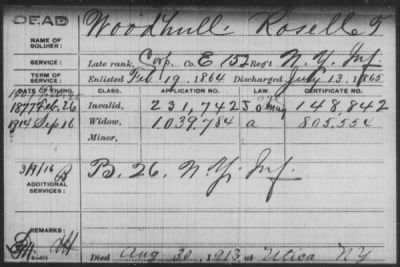 DEAD
NAME OF SOLDIER: Woodhull Rosell T
SERVICE: Late rank, Corp. Co. E 152 Reg't N.Y. Inf.
TERM OF SERVICE: Enlisted Feb. 19, 1864 Discharged July 13, 1865
DATE OF FILING. CLASS. APPLICATION NO. LAW. CERTIFICATE NO.
1877 Feb. 26 Invalid, 231,742 148,842
1914 Sep 16 Widow, 1.039.784 a 805.554
Minor,
ADDITIONAL SERVICES: B. 26. N.Y. Inf.
3/9/16
REMARKS:
Died Aug 30, 1913 at Utica NY